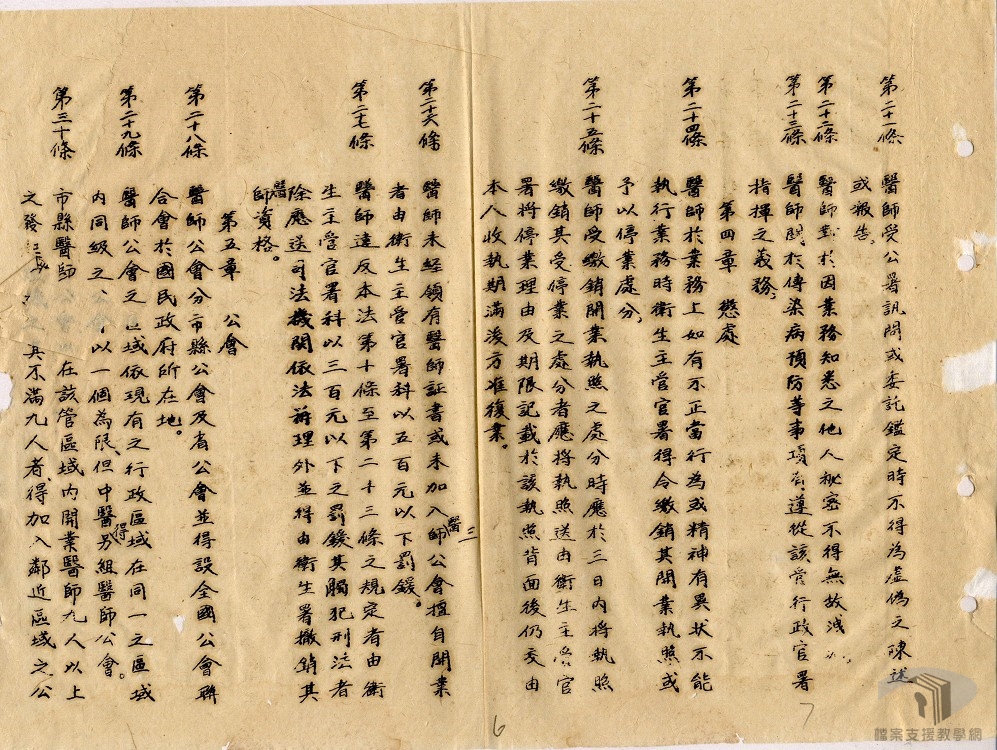 第二十一條 醫師受公署訊問或委託鑑定時不得為虛偽之陳述
或報告。
第二十二條 醫師對於因業務知悉之他人秘密不得無故洩
第二十三條 醫師關於傳染病預防等事項有遵從該管行政官署
指揮之義務。
第四章 懲處
第二十四條 醫師於業務上如有不正當行為或精神有異狀不能
執行業務時衛生主管官署得令繳銷其開業執照或
予以停業處分。
第二十五條 醫師受繳銷開業執照之處分時應於三日內將執照
繳銷其受停業之處分者應將執照送由衛生主管官
署將停業理由及期限記載於該執照背面後仍交由
本人收執期滿後方准復業。
第二十六條 醫師未經領有醫師証書或未加入醫師公會擅自開業
者由衛生主管官署科以五百元以下罰鍰。
第二十七條 醫師違反本法第十條至第二十三條之規定者由衛
生主管官署科以三百元以下之罰鍰其觸犯刑法者
除應送司法機關依法辦理外並得由衛生署撤銷其
醫師資格。
第五章 公會
第二十八條 醫師公會分市縣公會及省公會並得設全國公會聯
合會於國民政府所在地。
第二十九條 醫師公會之區域依現有之行政區域在同一之區域
內同級之 以一個為限、但中醫得另組醫師公會。
第三十條 市縣醫師 在該管區域內開業醫師九人以上
之發 其不滿九人者、得加入鄰近區域之公
二
6
7
檔案支援教學網